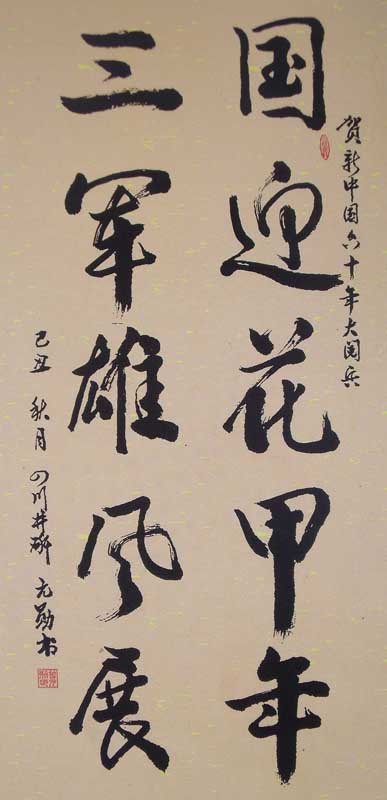 贺新中国六十年大阅兵
国迎花甲年
三军雄风展
己丑秋月四川井研元勋书